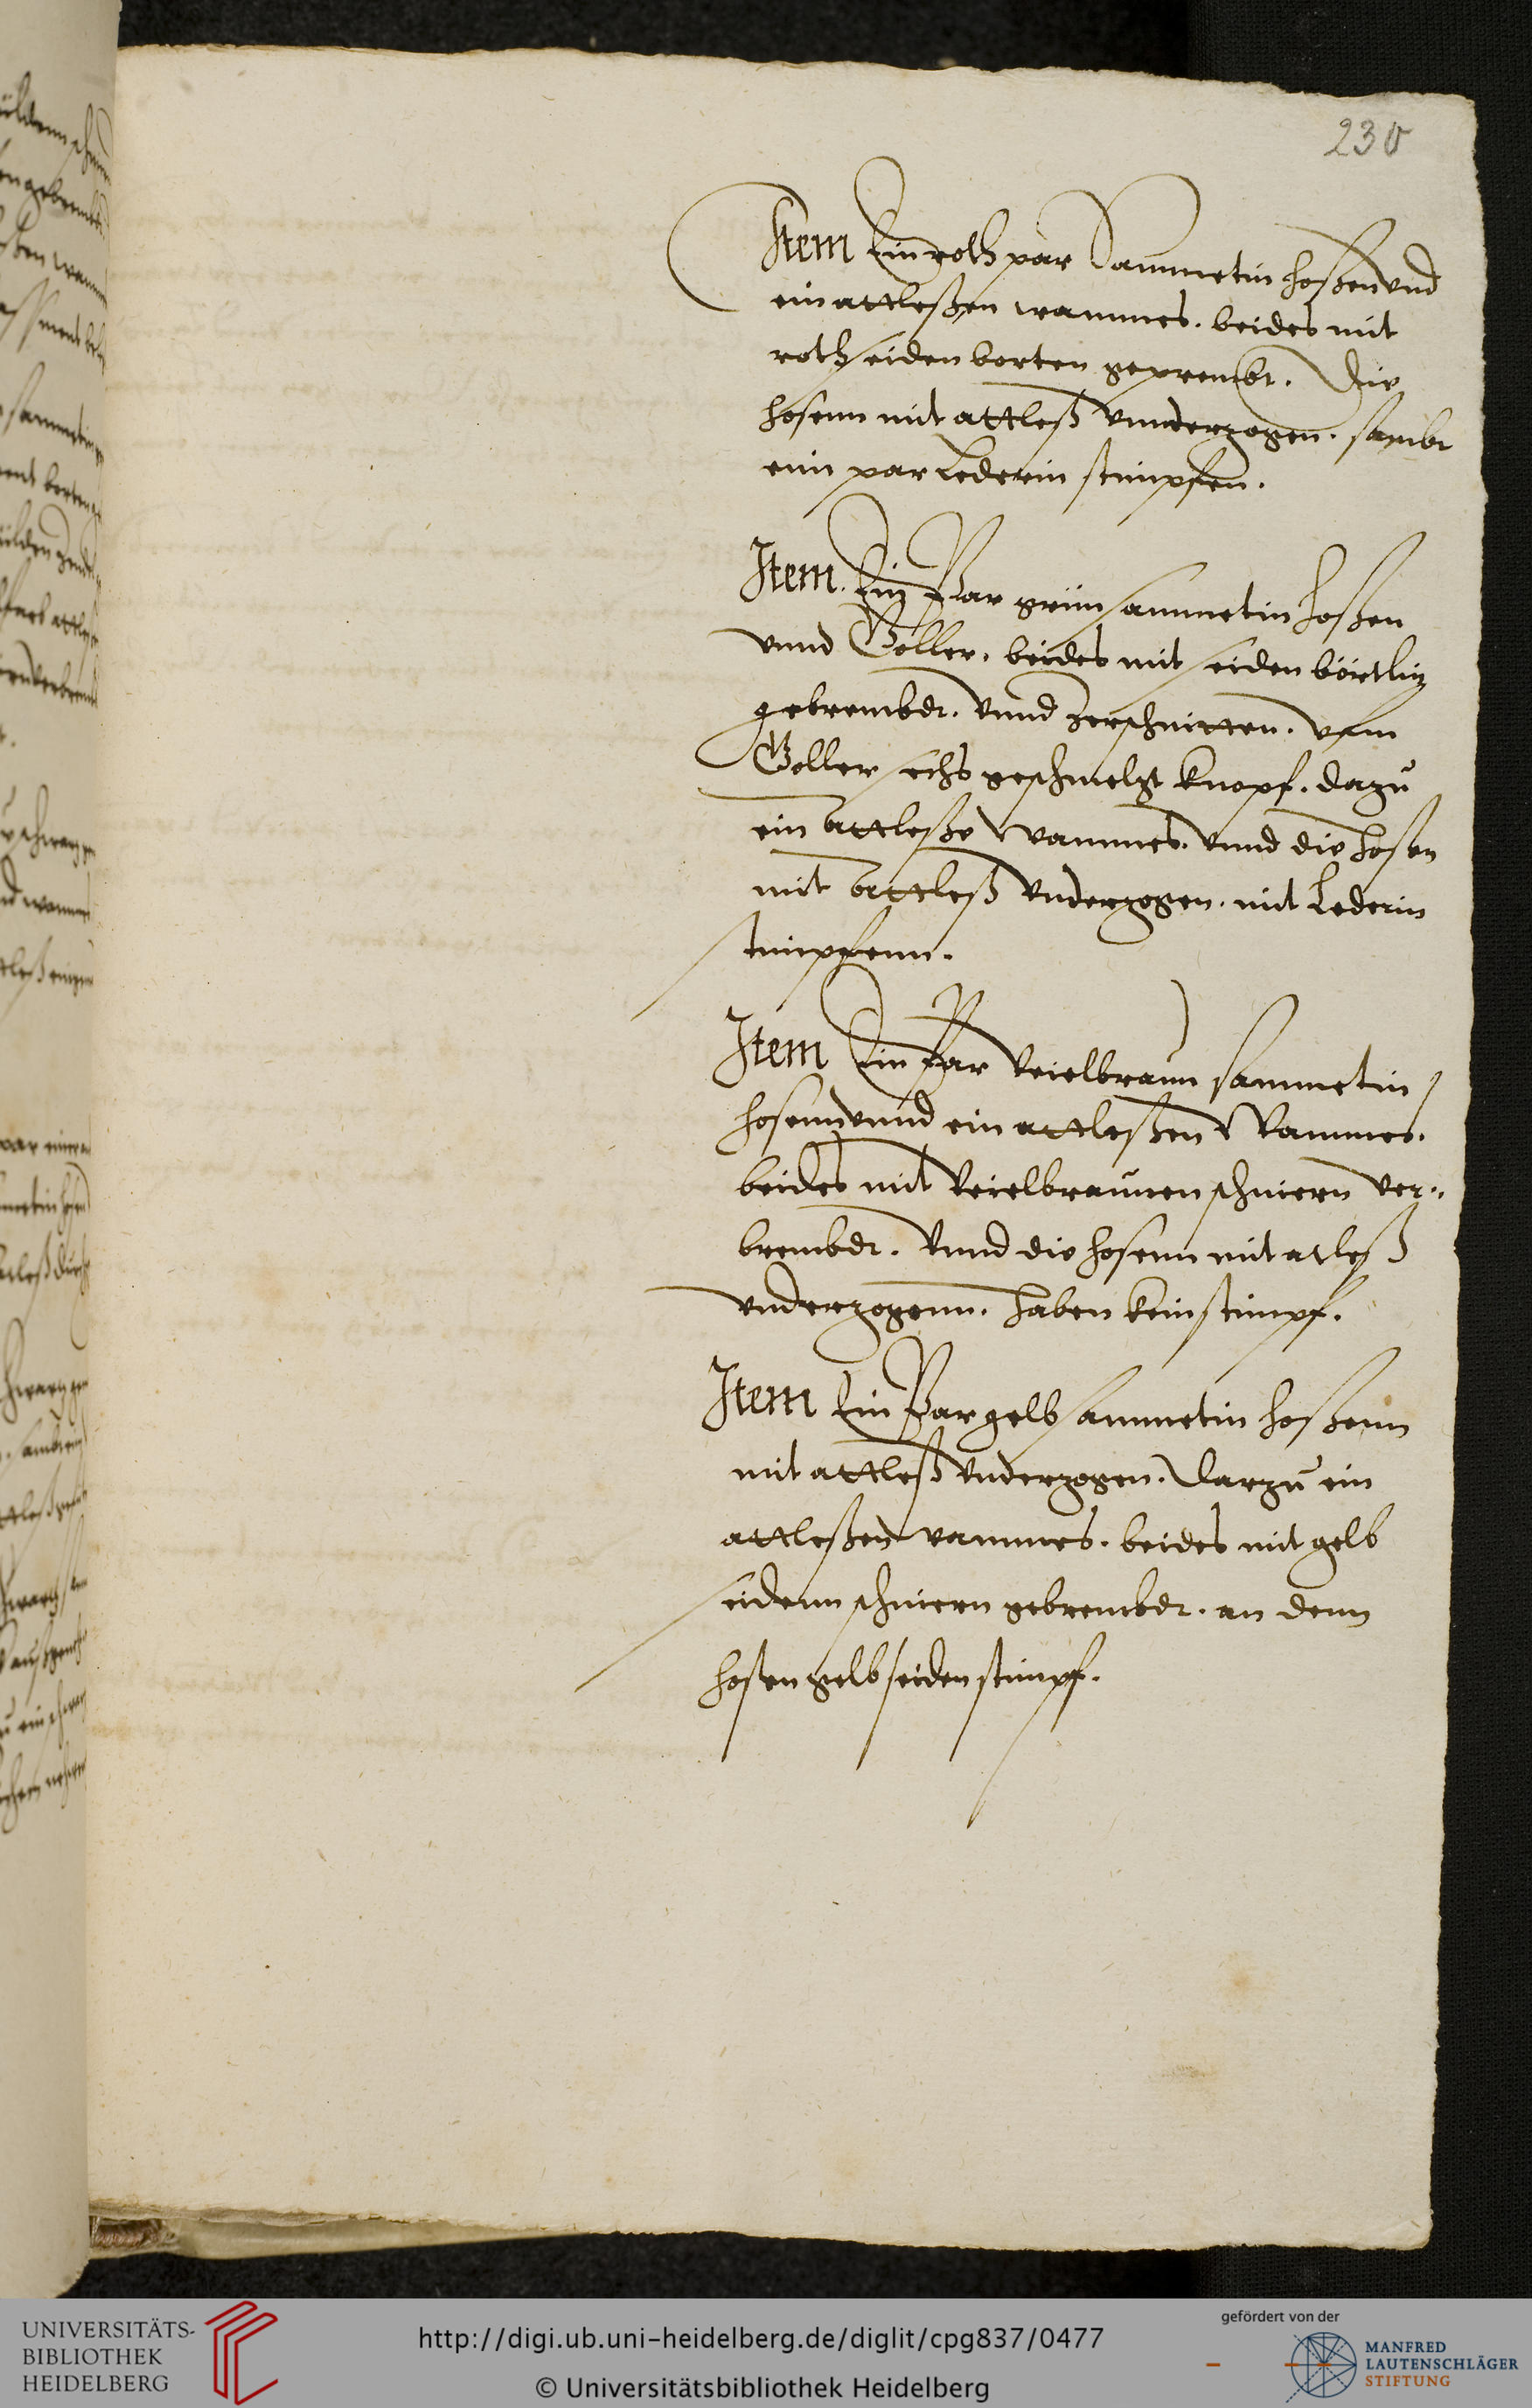 230
Item Ein roth par Sammetin hoßen vnd
ein attleßen wammes. beides mit
roth seiden borten geprembt. Die
hosenn mit attleß vnnderzogen. sambt
ein par Lederin stimpfen.
Item. Ein Par grün sammetin hoßen
vnnd Göller. beides mit seiden börtlin
gebrembdt. vnnd zerschnitten. vfm
Goller sechs geschmelzt knopf. dazu
ein attleße wammes. vnnd die hosen
mit attleß vnderzogen. mit Lederin
stimpfenn.
Item Ein Par Veielbraun sammetin
hosenn vnnd ein attleßen Wammes.
beides mit Veielbraunen schniern ver„
brembdt. Vnnd die hosenn mit atleß
vnderzogenn. haben kein stimpf.
Item Ein Par gelb sammetin hoßenn
mit attleß vnderzogen. Darzu ein
attleßen wammes. beides mit gelb
seidenn schniern gebrembdt. an denn
hosen gelb seiden stimpf.
UNIVERSITÄTS-
BIBLIOTHEK
HEIDELBERG
http://digi.ub.uni-heidelberg.de/diglit/cpg837/0477
© Universitätsbibliothek Heidelberg
gefördert von der
MANFRED
LAUTENSCHLÄGER
STIFTUNG